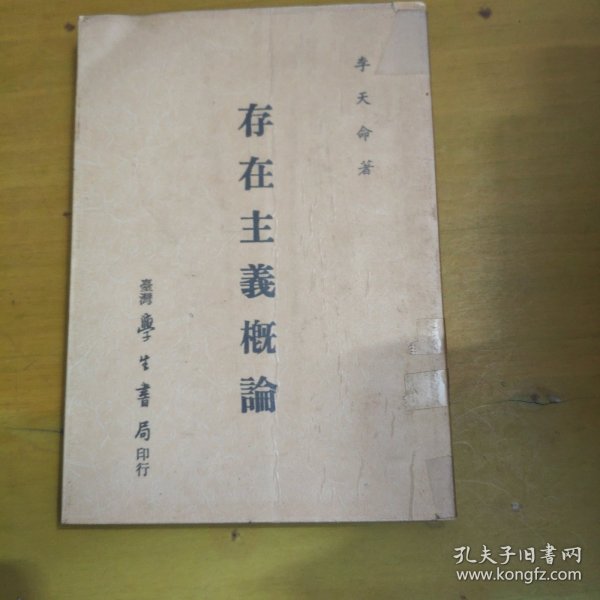 李天命著
存在主義概論
臺灣學生書局印行
孔夫子旧书网
www.kongfz.com